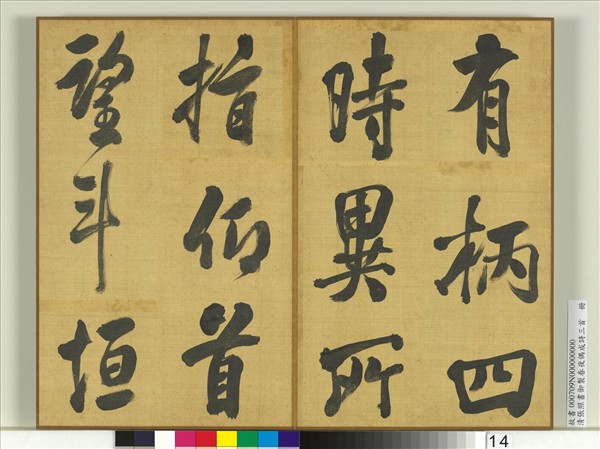 有柄四
時異所
指仰首
望斗垣
故書000709N000000000
清張照書御製春夜偶成詩三首 冊
14